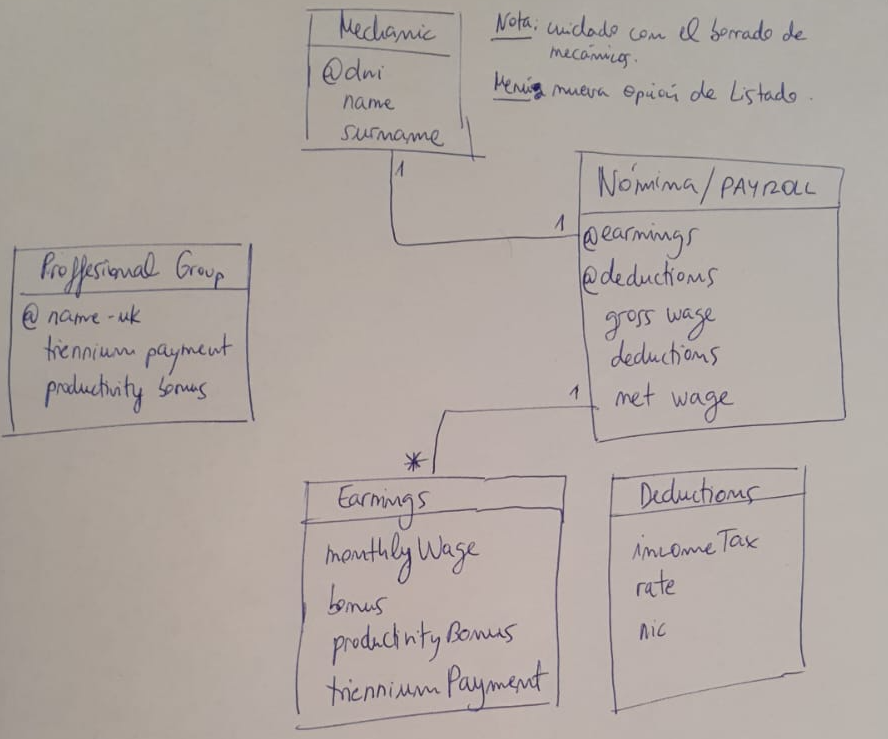 Mechanic
@dni
name
surname
Nota: cuidado con el borrado de
mecánicos.
Menús nueva opción de Listado.
1
1
Nómina/PAYROLL
@earnings
@deductions
gross wage
deductions
net wage
Proffesional Group
@ name-uk
triennium payment
productivity bonus
1
*
Earnings
monthlyWage
bonus
productivityBonus
trienniumPayment
Deductions
incomeTax
rate
nic